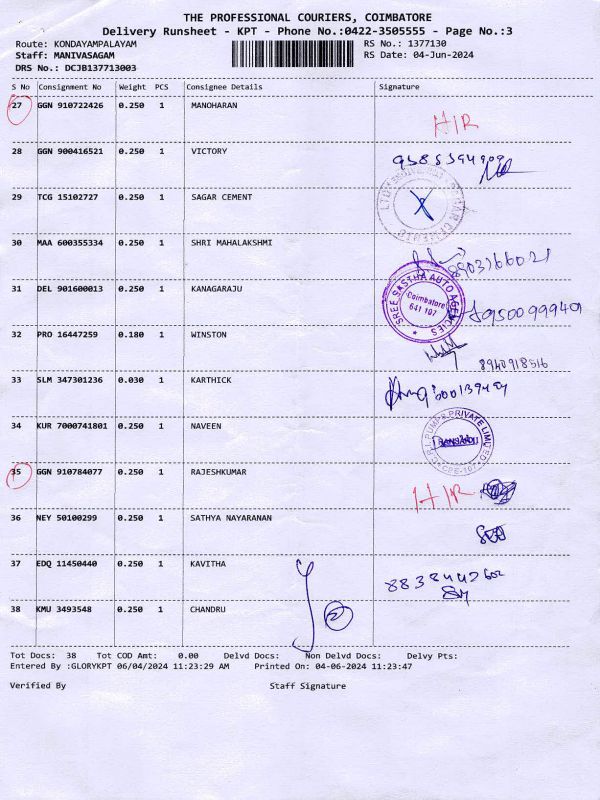 THE PROFESSIONAL COURIERS, COIMBATORE
Delivery Runsheet - KPT - Phone No.:0422-3505555 - Page No.:3
Route: KONDAYAMPALAYAM RS No.: 1377130
Staff: MANIVASAGAM RS Date: 04-Jun-2024
DRS No.: DCJB137713003
S No Consignment No Weight PCS Consignee Details Signature
27 GGN 910722426 0.250 1 MANOHARAN
H/R
28 GGN 900416521 0.250 1 VICTORY
9585394909
29 TCG 15102727 0.250 1 SAGAR CEMENT
30 MAA 600355334 0.250 1 SHRI MAHALAKSHMI
8903766021
31 DEL 901600013 0.250 1 KANAGARAJU
SREE SASTHA AUTO AGENCIES
Coimbatore
641 107
8950099949
32 PRO 16447259 0.180 1 WINSTON
8940918516
33 SLM 347301236 0.030 1 KARTHICK
34 KUR 7000741801 0.250 1 NAVEEN
PUMPS PRIVATE LIMITED
35 GGN 910784077 0.250 1 RAJESHKUMAR
H/R
36 NEY 50100299 0.250 1 SATHYA NAYARANAN
37 EDQ 11450440 0.250 1 KAVITHA
8838447602
38 KMU 3493548 0.250 1 CHANDRU
Tot Docs: 38 Tot COD Amt: 0.00 Delvd Docs: Non Delvd Docs: Delvy Pts:
Entered By :GLORYKPT 06/04/2024 11:23:29 AM Printed On: 04-06-2024 11:23:47
Verified By Staff Signature